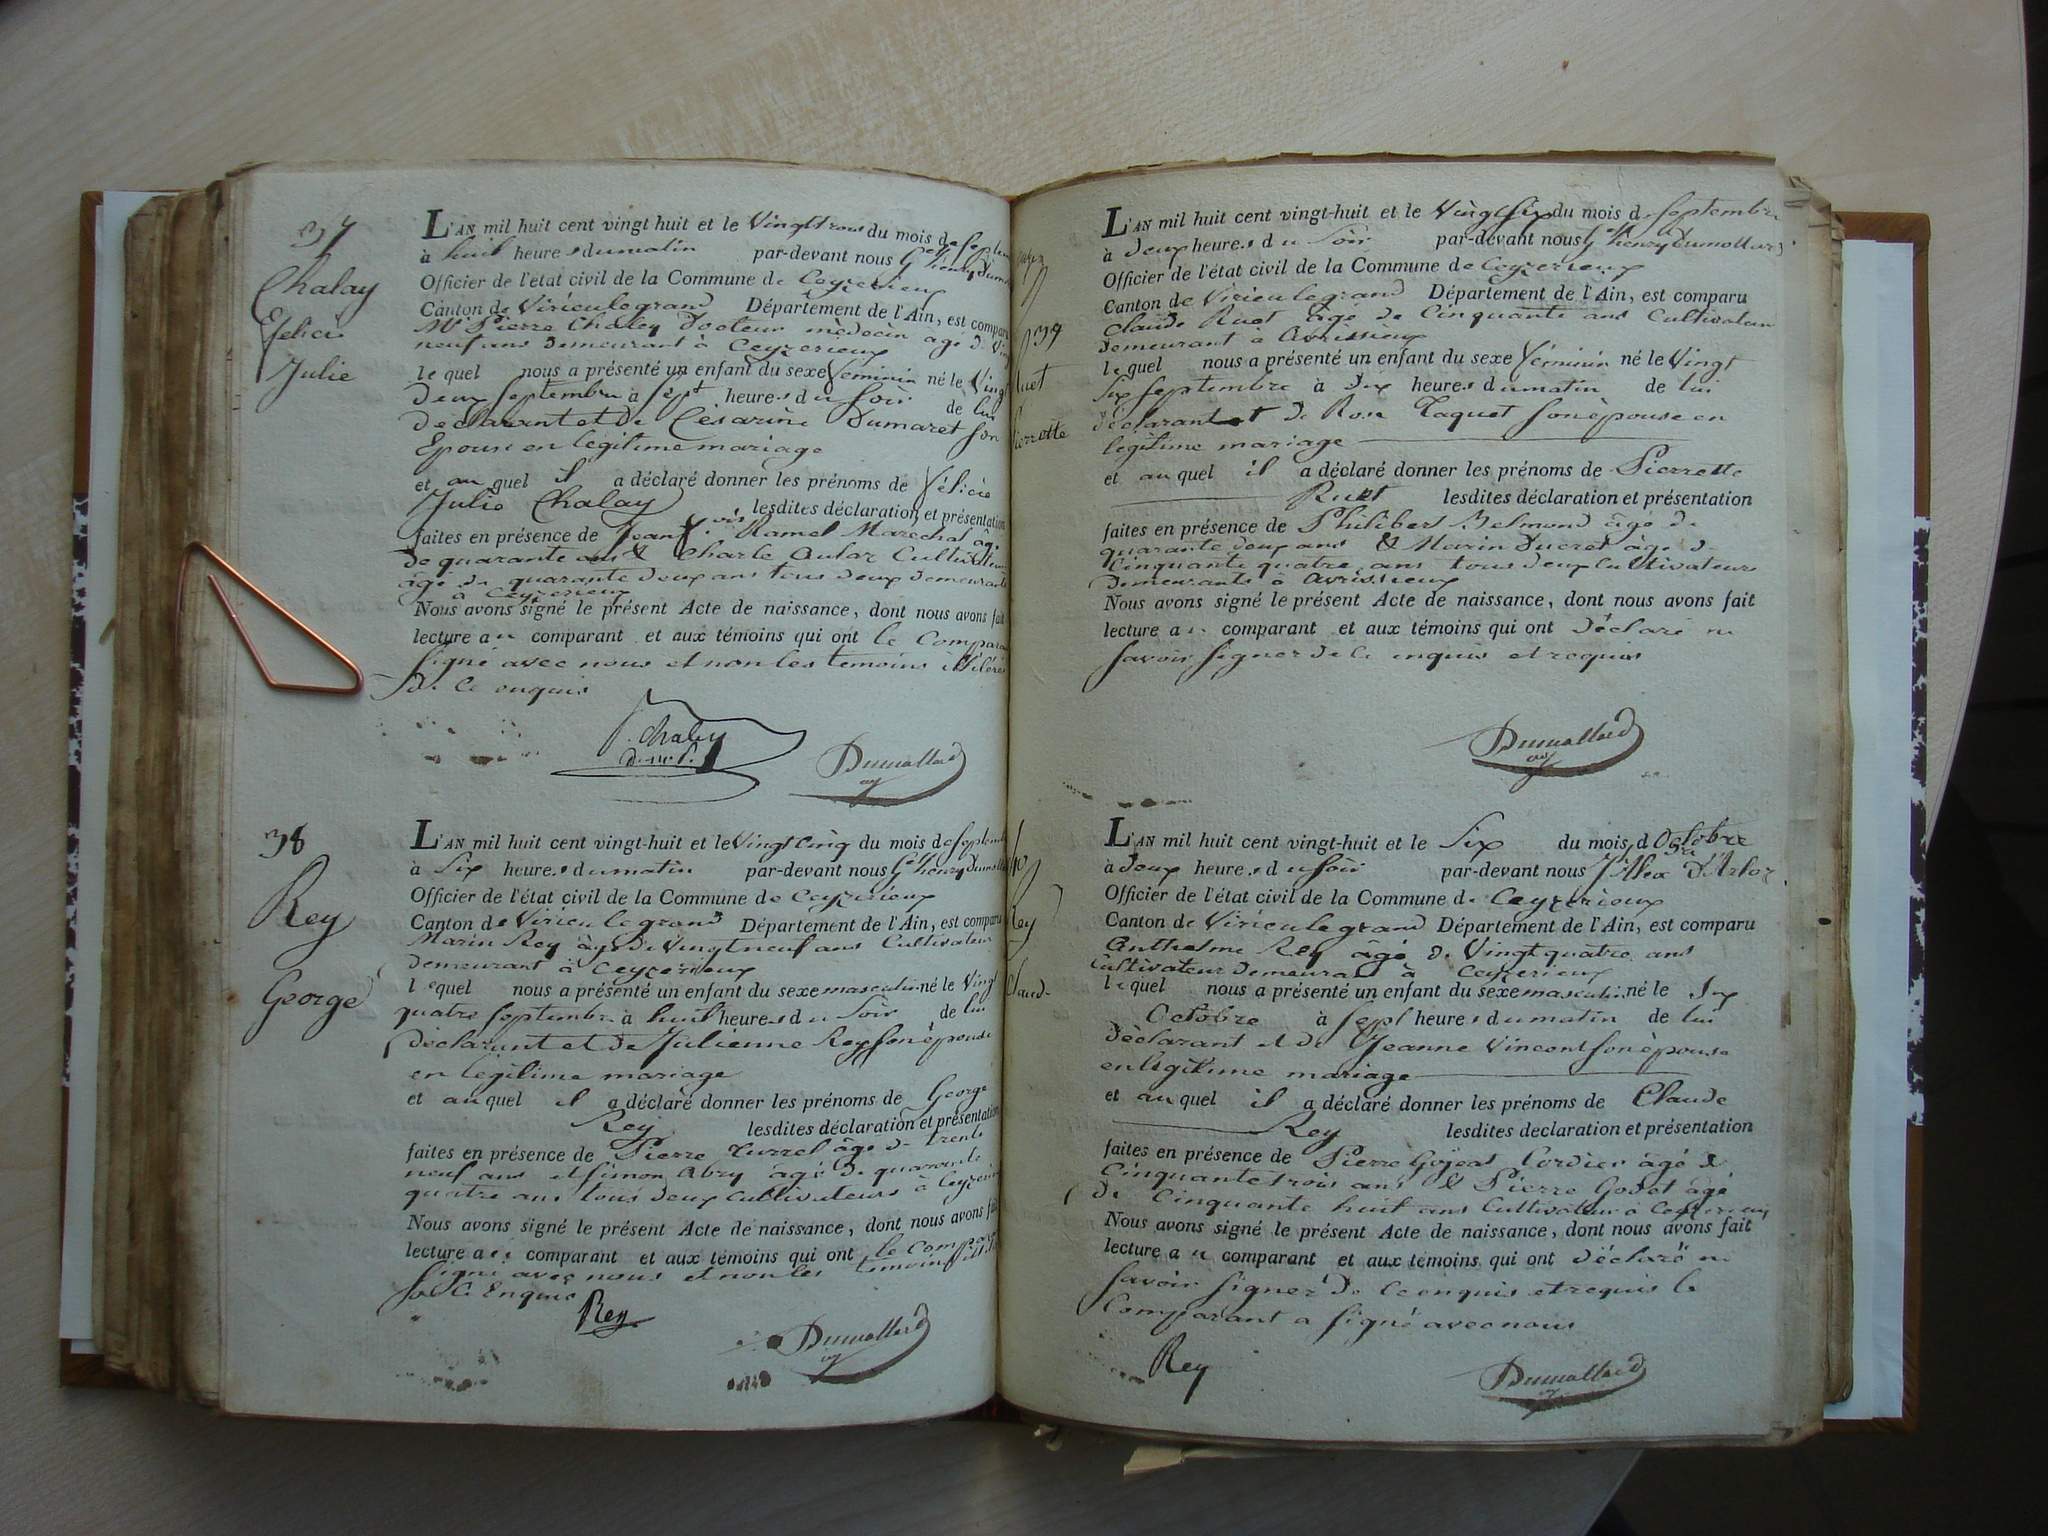 37
Chalay
Félicie
Julie
L'AN mil huit cent vingt huit et le Vingt trois du mois de Septem
à huit heures du matin par-devant nous Gme henry Dumo
Officier de l'état civil de la Commune de Ceyzerieux
Canton de Virieu le grand Département de l'Ain, est comparu
Mr Pierre Chaley Docteur mèdecin âgé de Vin
neuf ans demeurant à Ceyzerieux
le quel nous a présenté un enfant du sexe féminin né le Vingt
Deux Septembre à Sept heures du Soir de lui
déclarant et de Césarine Dumaret son
Epouse en legitime mariage
et au quel il a déclaré donner les prénoms de Félicie
Julie Chalay lesdites déclaration et présentation
faites en présence de Jean Ramel Marechal âgé
de quarante ans & Charle Cultivateur
âgé de quarante deux ans tous deux demeurants
à Ceyzerieux
Nous avons signé le présent Acte de naissance, dont nous avons fait
lecture au comparant et aux témoins qui ont le Compara
signé avec nous et non les temoins illiteré
de Ce enquis
Chaley
Dumollard
38
Rey
George
L'AN mil huit cent vingt-huit et le Vingt cinq du mois de Septemb
à Six heures du matin par-devant nous Gme henry Dumollard
Officier de l'état civil de la Commune de Ceyzerieux
Canton de Virieu le grand Département de l'Ain, est comparu
Marin Rey âgé de Vingt neuf ans Cultivateur
demeurant à Ceyzerieux
lequel nous a présenté un enfant du sexe masculin né le Vingt
quatre Septembre à huit heures du Soir de lui
déclarant et de Julienne Rey son épouse
en legitime mariage
et au quel il a déclaré donner les prénoms de George
Rey lesdites déclaration et présentation
faites en présence de Pierre Turrel âgé de trente
neuf ans et Simon Abry âgé de quarante
quatre ans tous deux cultivateurs à Ceyzerieu
Nous avons signé le présent Acte de naissance, dont nous avons fait
lecture au comparant et aux témoins qui ont le Compar
signé avec nous et non les temoins
de Ce Enquis
Rey
Dumollard
39
Ruet
Pierrette
L'AN mil huit cent vingt-huit et le Vingt six du mois de Septembre
à deux heures du Soir par-devant nous Gme henry Dumollard
Officier de l'état civil de la Commune de Ceyzerieux
Canton de Virieu le grand Département de l'Ain, est comparu
Claude Ruet âgé de Cinquante ans Cultivateur
Demeurant à Avrissieux
lequel nous a présenté un enfant du sexe féminin né le Vingt
Six Septembre à Dix heures du matin de lui
déclarant et de Rose Taquet son épouse en
legitime mariage
et au quel il a déclaré donner les prénoms de Pierrette
Ruet lesdites déclaration et présentation
faites en présence de Philibert Belmond âgé de
quarante deux ans & Marin Ducret âgé de
Cinquante quatre ans tous deux Cultivateurs
demeurants à Avrissieux
Nous avons signé le présent Acte de naissance, dont nous avons fait
lecture au comparant et aux témoins qui ont déclaré ne
savoir signer de Ce enquis et requis
Dumollard
40
Rey
Claude
L'AN mil huit cent vingt-huit et le Six du mois d'Octobre
à deux heures du Soir par-devant nous Alex d'Arloz
Officier de l'état civil de la Commune de Ceyzerieux
Canton de Virieu le grand Département de l'Ain, est comparu
Anthelme Rey âgé de Vingt quatre ans
Cultivateur demeurant à Ceyzerieux
lequel nous a présenté un enfant du sexe masculin né le Six
Octobre à Sept heures du matin de lui
déclarant et de Jeanne Vincent son épouse
en legitime mariage
et au quel il a déclaré donner les prénoms de Claude
Rey lesdites declaration et présentation
faites en présence de Pierre Cordier âgé de
Cinquante trois ans & Pierre Godet âgé
de Cinquante huit ans Cultivateur à Ceyzerieux
Nous avons signé le présent Acte de naissance, dont nous avons fait
lecture au comparant et aux témoins qui ont déclaré ne
savoir signer de Ce enquis et requis le
Comparant a signé avec nous
Rey
Dumollard